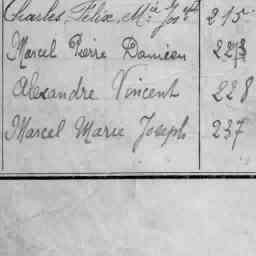 Charles Félix M.ie Jos.ph 215
Marcel Pierre Damien 223
Alexandre Vincent 228
Marcel Marie Joseph 237